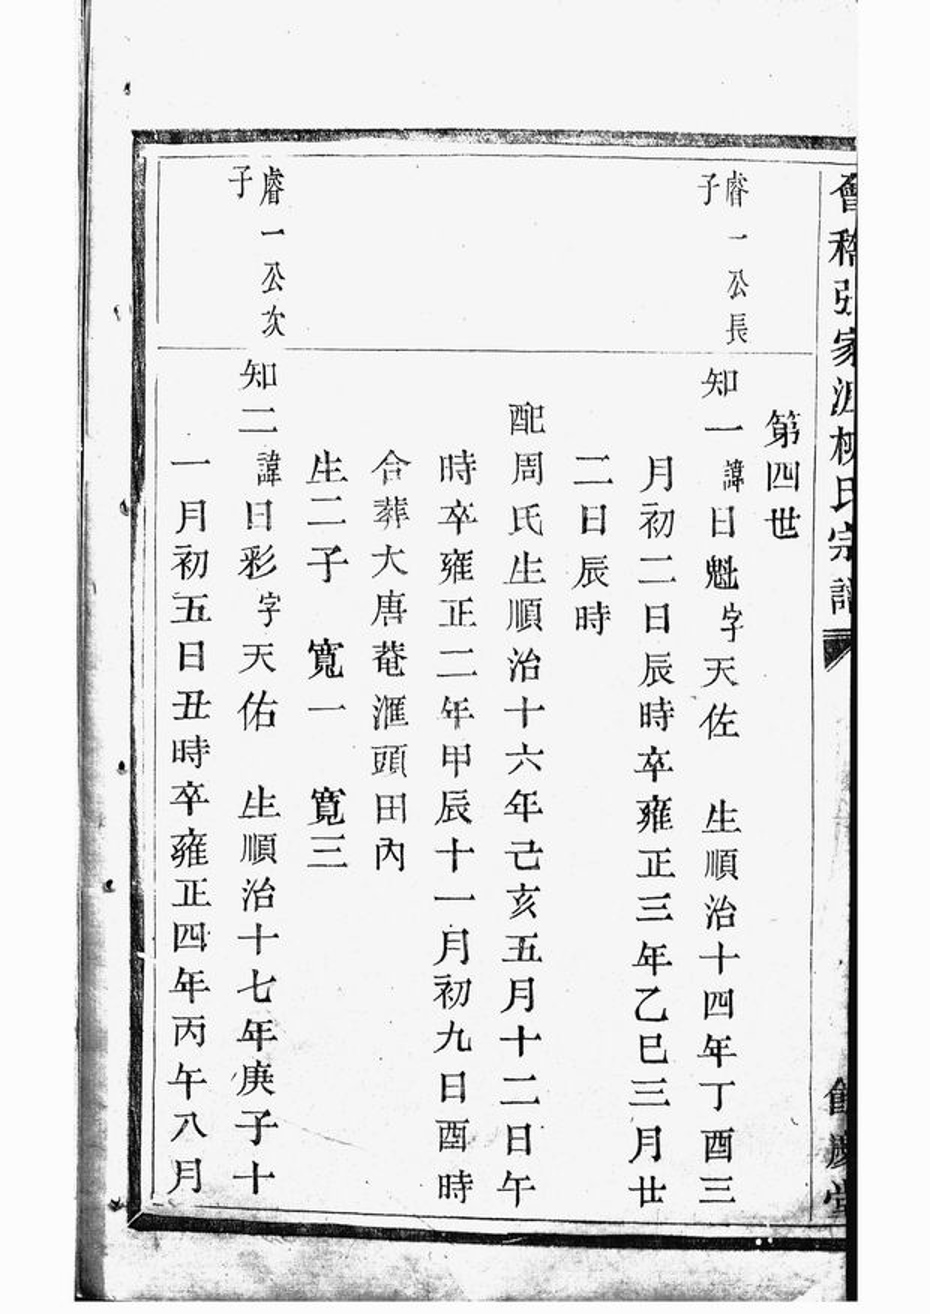 會稽張家漊柳氏宗譜
第四世
睿一公長
子
知一諱日魁字天佐 生順治十四年丁酉三
月初二日辰時卒雍正三年乙巳三月廿
二日辰時
配周氏生順治十六年己亥五月十二日午
時卒雍正二年甲辰十一月初九日酉時
合葬大唐菴滙頭田內
生二子 寬一 寬三
睿一公次
子
知二諱日彩字天佑 生順治十七年庚子十
一月初五日丑時卒雍正四年丙午八月